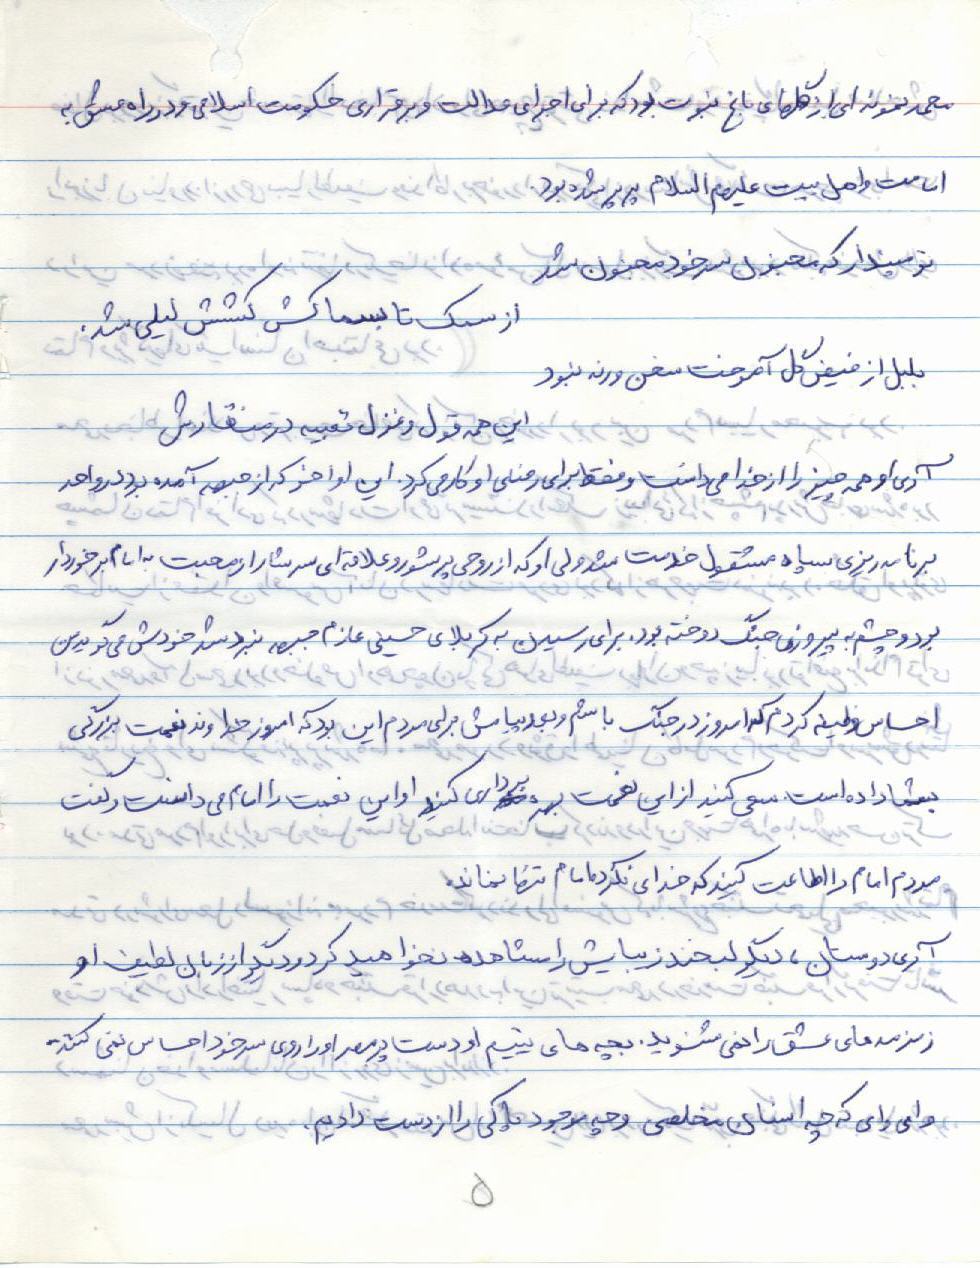 محمد نمونه ای از گلهای باغ نبوت بود که برای اجرای عدالت و برقراری حکومت اسلامی و در راه عشق به
امامت و اهل بیت علیهم السلام پرپر شده بود.
تو مپندار که مجنون سر خود مجنون شد
از سمک تا بسما کش کشش لیلی شد.
بلبل از فیض گل آموخت سخن ورنه نبود
این همه قول و غزل تعبیه در منقارش
آری او همه چیز را از خدا می دانست و فقط برای رضای او کار می کرد. این اواخر که از جبهه آمده بود در واحد
برنامه ریزی سپاه مشغول خدمت شد ولی او که از روحی پرشور و علاقه ای سرشار از محبت به امام برخوردار
بود و چشم به پیروزی جنگ دوخته بود. برای رسیدن به کربلای حسینی عازم جبهه نبرد شد خودش می گوید من
احساس وظیفه کردم که امروز در جنگ باشم و پیامش برای مردم این بود که امروز خداوند نعمت بزرگی
بشما داده است. سعی کنید از این نعمت بهره برداری کنید او این نعمت را امام می دانست و گفت
مردم امام را اطاعت کنید که خدای نکرده امام تنها نماند.
آری دوستان، دیگر لبخند زیبایش را مشاهده نخواهید کرد و دیگر از زبان لطیف او
زمزمه های عشق را نمی شنوید. بچه های یتیم او دست پر مهر او را روی سر خود احساس نمی کنند
وای وای که چه انسان مخلصی و چه موجود پاکی را از دست دادیم.
۵